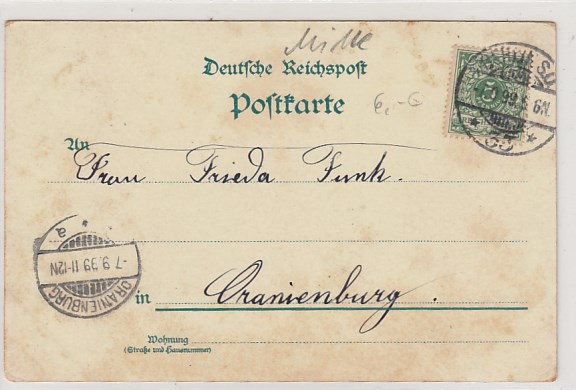 Mitte
Deutsche Reichspost
Postkarte
6,-G
An
Frau Frieda Funk.
in Oranienburg.
Wohnung
(Straße und Hausnummer)
5
99 6N.
ORANIENBURG
-7.9.99 11-12N
* a